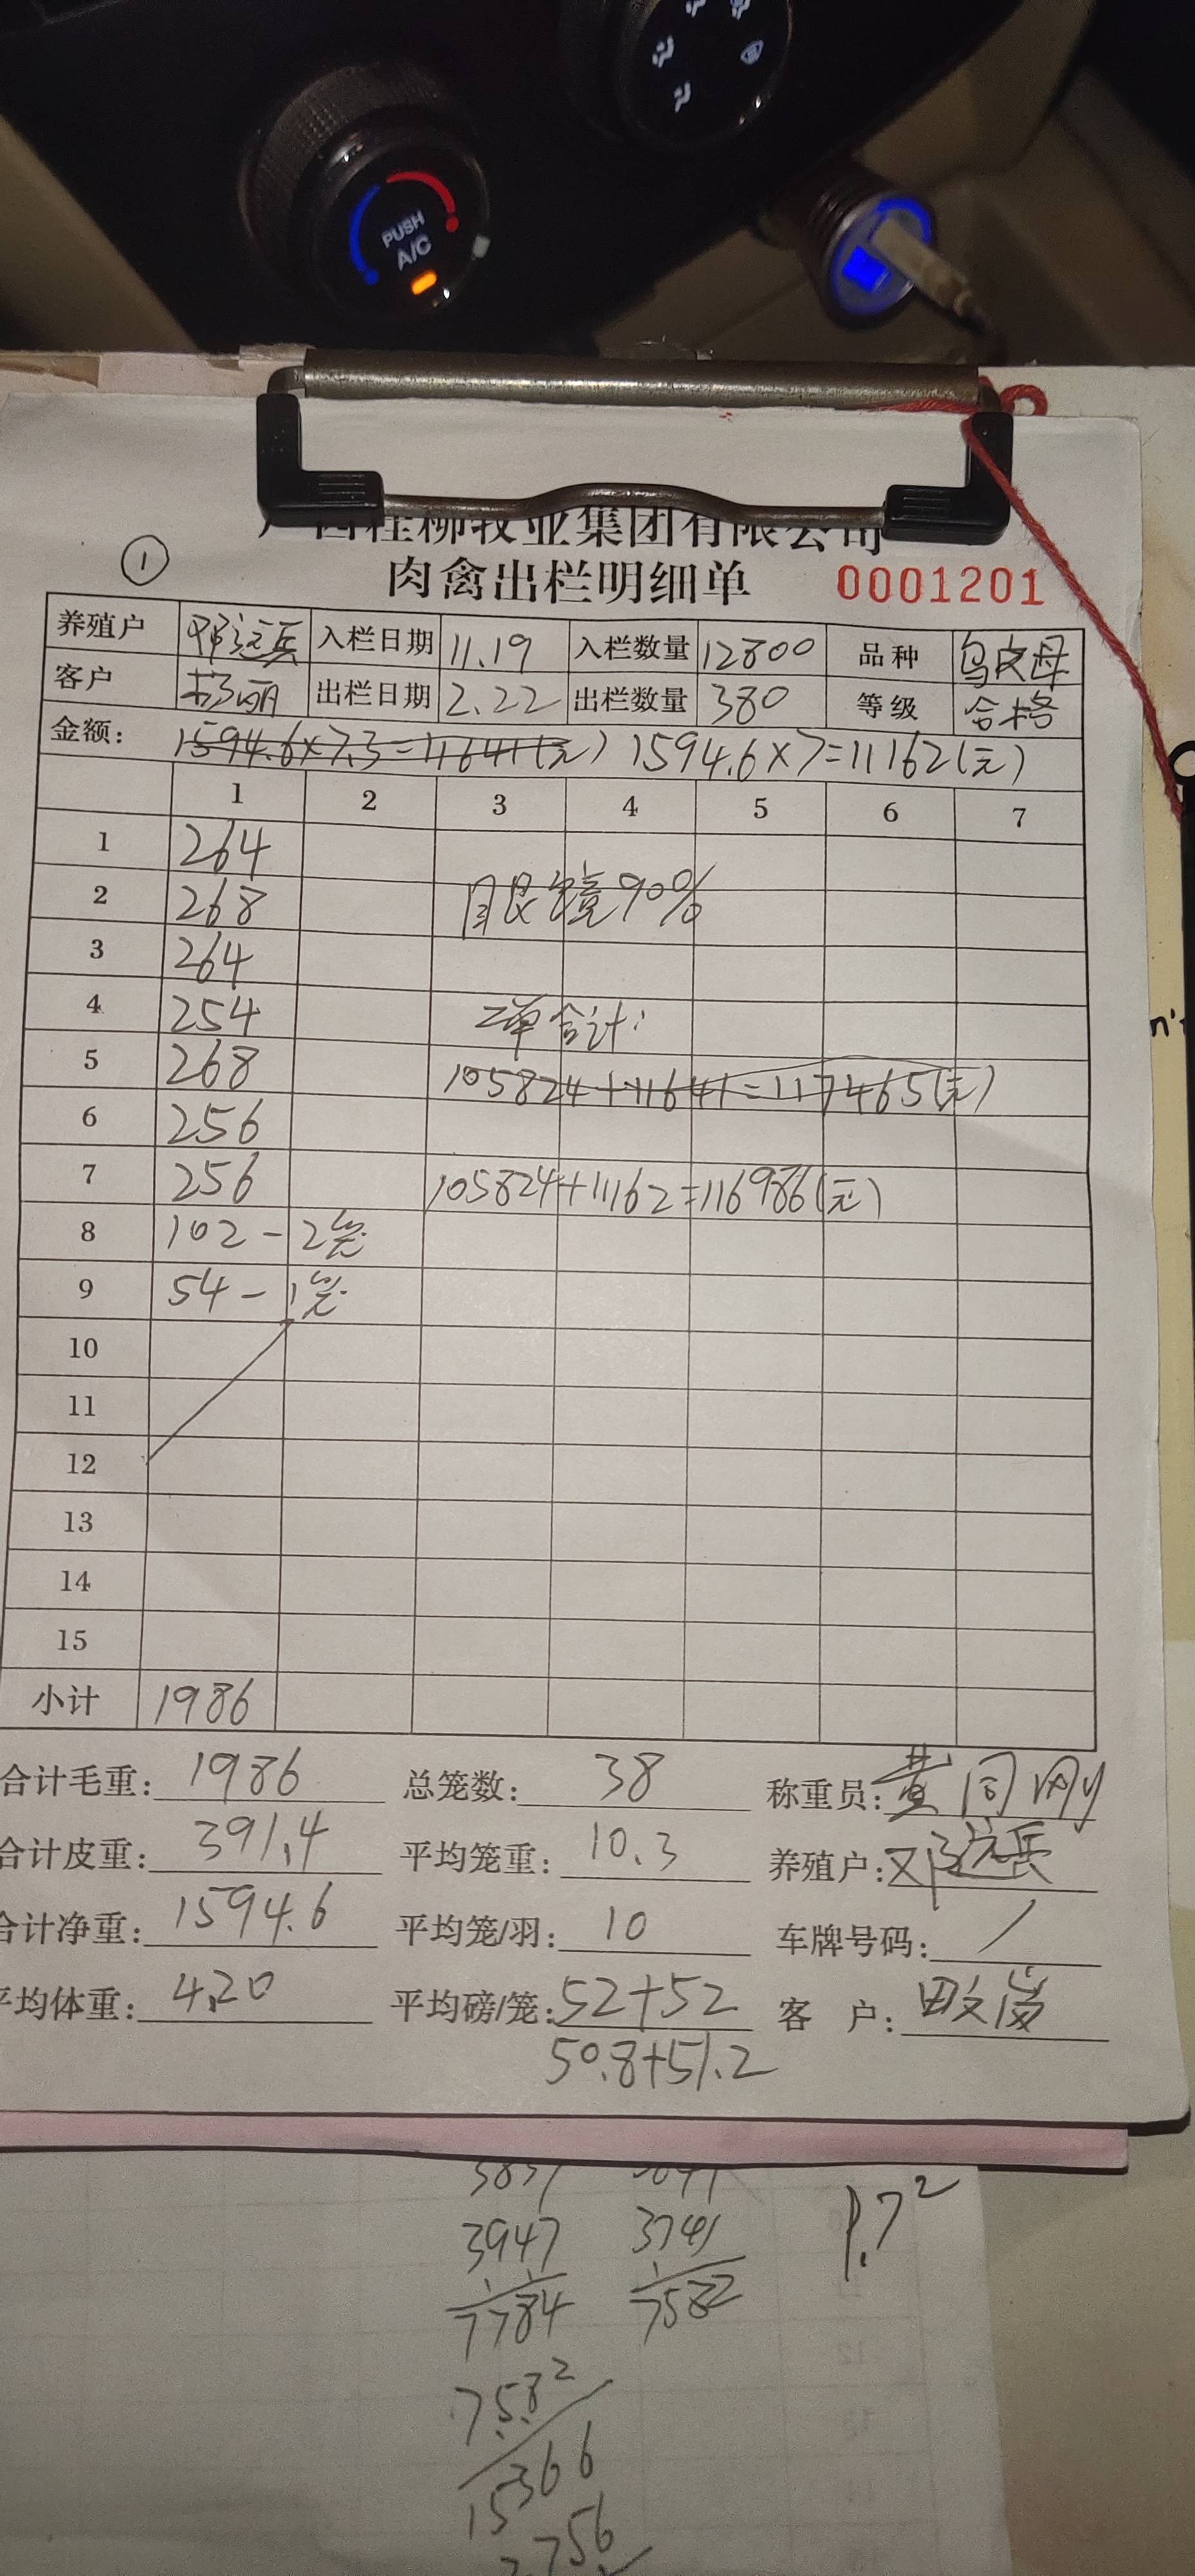 PUSH
A/C
广西桂柳牧业集团有限公司
① 肉禽出栏明细单 0001201
养殖户 邓远兵 入栏日期 11.19 入栏数量 12800 品种 乌皮母
客户 出栏日期 2.22 出栏数量 380 等级 合格
金额: 1594.6×7.3=11641(元) 1594.6×7=11162(元)
1 2 3 4 5 6 7
1 264
2 268 眼镜90%
3 264
4 254 二单合计:
5 268 105824+11641=117465(元)
6 256
7 256 105824+11162=116986(元)
8 102-2笼
9 54-1笼
10
11
12
13
14
15
小计 1986
合计毛重: 1986 总笼数: 38 称重员: 黄同刚
合计皮重: 391.4 平均笼重: 10.3 养殖户: 邓远兵
合计净重: 1594.6 平均笼/羽: 10 车牌号码: /
平均体重: 4.20 平均磅/笼: 52+52 客 户:
50.8+51.2
3947 3741 1.7²
7784 7582
7582
15366
2756